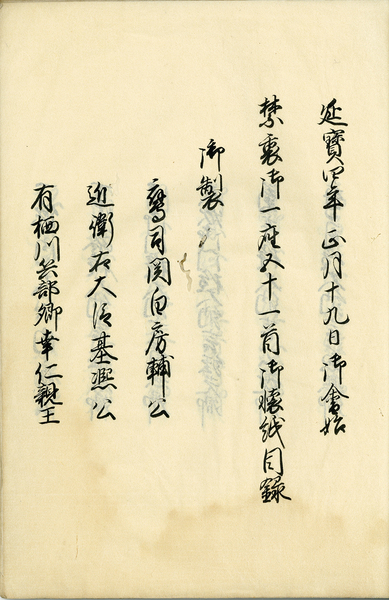 延寳四年正月十九日御會始
禁裏御一座五十一首御懐紙目録
御製
鷹司関白房輔公
近衛右大臣基熈公
有栖川兵部卿幸仁親王